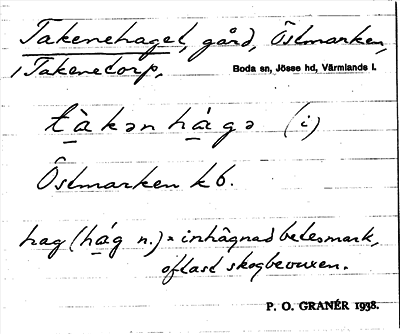 Takenehaget, gård, Östmarken,
i Takenetorp,
Boda sn, Jösse hd, Värmlands l.
tàkən hágə (i)
Östmarken kb.
hag (hág n.) = inhägnad betesmark,
oftast skogbevuxen.
P. O. GRANÉR 1938.